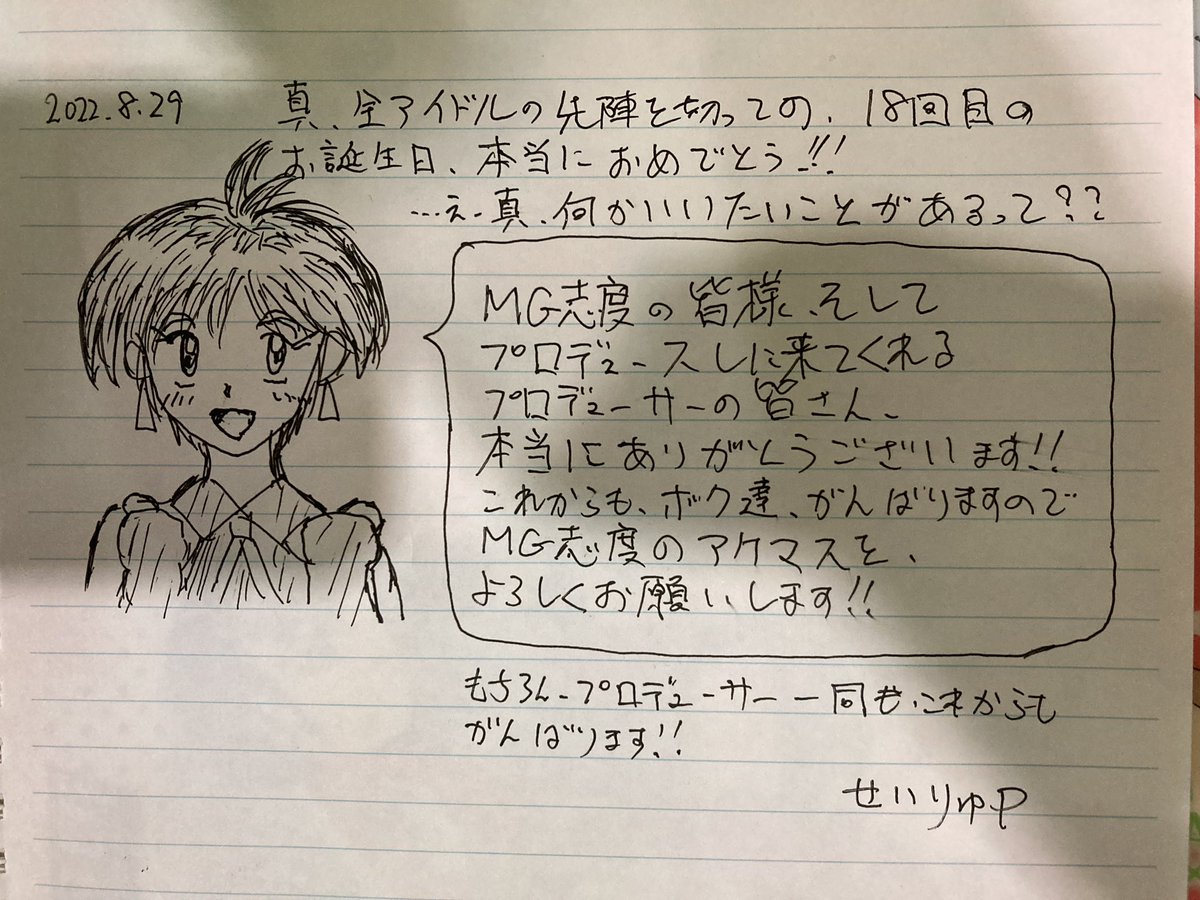 2022.8.29
真、全アイドルの先陣を切っての、18回目の
お誕生日、本当におめでとう!!!
…え、真、何かいいたいことがあるって??
MG志度の皆様、そして
プロデュースしに来てくれる
プロデューサーの皆さん、
本当にありがとうございます!!
これからも、ボク達、がんばりますので
MG志度のアケマスを、
よろしくお願いします!!
もちろん、プロデューサー一同も、これからも
がんばります!!
せいりゅP